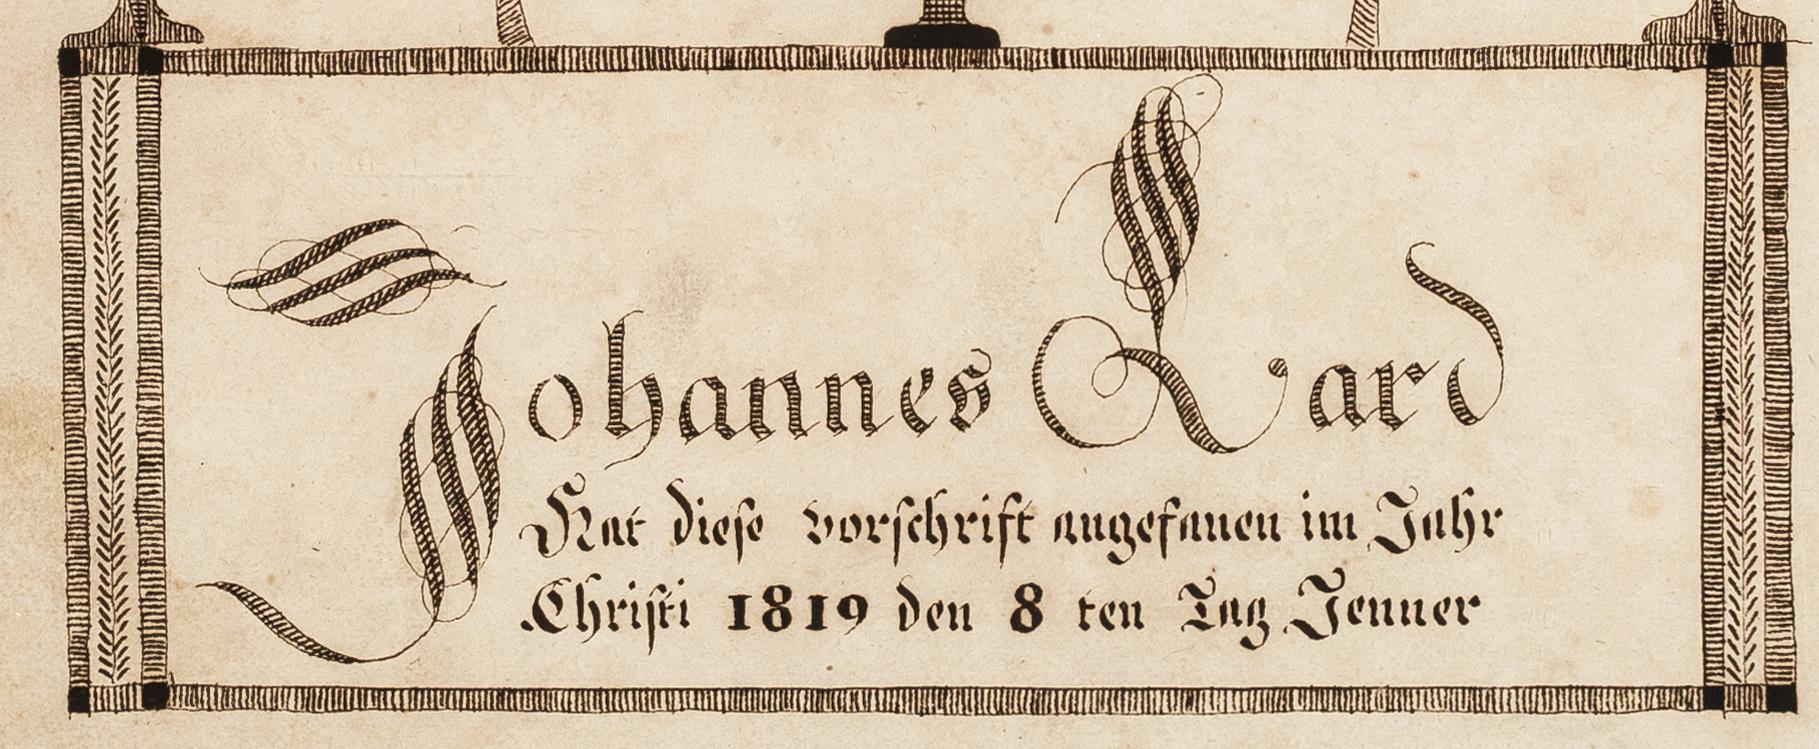 Johannes Lard
Hat diese vorschrift angefanen im Jahr
Christi 1819 den 8 ten Tag Jenner